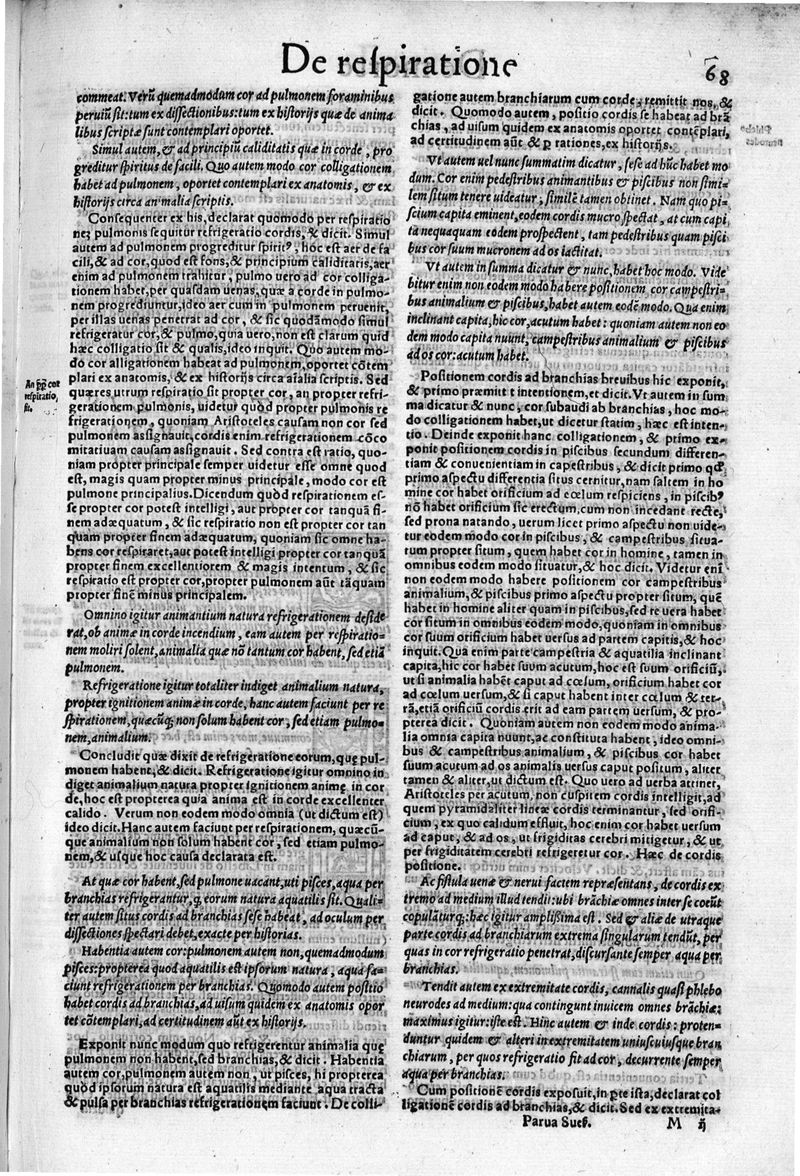 De respiratione
68
commeat. Verũ quemadmodum cor ad pulmonem foraminibus
peruiũ sit: tum ex dissectionibus: tum ex historijs quæ de anima
libus scriptæ sunt contemplari oportet.
Simul autem, & ad principiũ caliditatis quæ in corde, pro
greditur spiritus de facili. Quo autem modo cor colligationem
habet ad pulmonem, oportet contemplari ex anatomis, & ex
historijs circa animalia scriptis.
Consequenter ex his, declarat quomodo per respiratio
nem pulmonis sequitur refrigeratio cordis, & dicit. Simul
autem ad pulmonem progreditur spirit⁹, hoc est aer de fa
cili, & ad cor, quod est fons, & principium caliditatis, aer
enim ad pulmonem trahitur, pulmo uero ad cor colliga-
tionem habet, per quasdam uenas, quæ a corde in pulmo-
nem progrediuntur, ideo aer cum in pulmonem peruenit,
per illas uenas penetrat ad cor, & sic quodãmodo simul
refrigeratur cor, & pulmo, quia uero, non est clarum quid
hæc colligatio sit & qualis, ideo inquit. Quo autem mo-
do cor alligationem habeat ad pulmonem, oportet cõtem
plari ex anatomis, & ex historijs circa aĩalia scriptis. Sed
quæres utrum respiratio sit propter cor, an propter refri-
gerationem pulmonis, uidetur quòd propter pulmonis re
frigerationem, quoniam Aristoteles causam non cor sed
pulmonem assignauit, cordis enim refrigerationem cõco
mitatiuam causam assignauit. Sed contra est ratio, quo-
niam propter principale semper uidetur esse omne quod
est, magis quam propter minus principale, modo cor est
pulmone principalius. Dicendum quòd respirationem es-
se propter cor potest intelligi, aut propter cor tanquã fi-
nem adæquatum, & sic respiratio non est propter cor tan
quam propter finem adæquatum, quoniam sic omne ha-
bens cor respiraret, aut potest intelligi propter cor tanquã
propter finem excellentiorem & magis intentum, & sic
respiratio est propter cor, propter pulmonem aũt tãquam
propter finẽ minus principalem.
Omnino igitur animantium natura refrigerationem deside
rat, ob animæ in corde incendium, eam autem per respiratio-
nem moliri solent, animalia quæ nõ tantum cor habent, sed etiã
pulmonem.
Refrigeratione igitur totaliter indiget animalium natura,
propter ignitionem animæ in corde, hanc autem faciunt per re
spirationem, quæcũq; non solum habent cor, sed etiam pulmo-
nem, animalium.
Concludit quæ dixit de refrigeratione eorum, quę pul-
monem habent, & dicit. Refrigeratione igitur omnino in
diget animalium natura propter ignitionem animę in cor
de, hoc est propterea quia anima est in corde excellenter
calido. Verum non eodem modo omnia (ut dictum est)
ideo dicit. Hanc autem faciunt per respirationem, quæcũ-
que animalium non solum habent cor, sed etiam pulmo-
nem, & usque hoc causa declarata est.
At quæ cor habent, sed pulmone uacant, uti pisces, aqua per
branchias refrigerantur, q̃ eorum natura aquatilis sit. Quali-
ter autem situs cordis ad branchias sese habeat, ad oculum per
dissectiones spectari debet, exacte per historias.
Habentia autem cor: pulmonem autem non, quemadmodum
pisces: propterea quod aquatilis est ipsorum natura, aqua fa-
ciunt refrigerationem per branchias. Quomodo autem positio
habet cordis ad branchias, ad uisum quidem ex anatomis opor
tet cõtemplari, ad certitudinem aũt ex historijs.
Exponit nunc modum quo refrigerentur animalia quę
pulmonem non habent, sed branchias, & dicit. Habentia
autem cor, pulmonem autem non, ut pisces, hi propterea
quòd ipsorum natura est aquatilis mediante aqua tracta
& pulsa per branchias refrigerationem faciunt. De colli-
An ꝓp cor
respiratio
sit.
gatione autem branchiarum cum corde, remittit nos, &
dicit. Quomodo autem, positio cordis se habeat ad brã
chias, ad uisum quidem ex anatomis oportet contẽplari,
ad certitudinem aũt & p rationes, ex historijs.
Vt autem uel nunc summatim dicatur, sese ad hũc habet mo
dum. Cor enim pedestribus animantibus & piscibus non simi-
lem situm tenere uideatur, similẽ tamen obtinet. Nam quo pi-
scium capita eminent, eodem cordis mucro spectat, at cum capi
ta nequaquam eodem prospectent, tam pedestribus quam pisci
bus cor suum mucronem ad os iactitat.
Vt autem in summa dicatur & nunc, habet hoc modo. Vide
bitur enim non eodem modo habere positionem cor campestri-
bus animalium & piscibus, habet autem eodẽ modo. Qua enim
inclinant capita, hic cor, acutum habet: quoniam autem non eo
dem modo capita nuunt, campestribus animalium & piscibus
ad os cor: acutum habet.
Positionem cordis ad branchias breuibus hic exponit,
& primo præmittit intentionem, et dicit. Vt autem in sum
ma dicatur & nunc, cor subaudi ab branchias, hoc mo-
do colligationem habet, ut dicetur statim, hæc est inten-
tio. Deinde exponit hanc colligationem, & primo ex-
ponit positionem cordis in piscibus secundum differen-
tiam & conuenientiam in capestribus, & dicit primo qđ
primo aspectu differentia situs cernitur, nam saltem in ho
mine cor habet orificium ad cœlum respiciens, in piscib⁹
nõ habet orificium sic erectum, cum non incedant recte,
sed prona natando, uerum licet primo aspectu non uide-
tur eodem modo cor in piscibus, & campestribus situa-
tum propter situm, quem habet cor in homine, tamen in
omnibus eodem modo situatur, & hoc dicit. Videtur enĩ
non eodem modo habere positionem cor campestribus
animalium, & piscibus primo aspectu propter situm, quẽ
habet in homine aliter quam in piscibus, sed re uera habet
cor situm in omnibus eodem modo, quoniam in omnibus
cor suum orificium habet uersus ad partem capitis, & hoc
inquit. Qua enim parte campestria & aquatilia inclinant
capita, hic cor habet suum acutum, hoc est suum orificiũ,
ut si animalia habent caput ad cœlum, orificium habet cor
ad cœlum uersum, & si caput habent inter cœlum & ter-
rã, etiã orificiũ cordis erit ad eam partem uersum, & pro-
pterea dicit. Quoniam autem non eodem modo anima-
lia omnia capita nuunt, ac constituta habent, ideo omni-
bus & campestribus animalium, & piscibus cor habet
suum acutum ad os animalis uersus caput positum, aliter
tamen & aliter, ut dictum est. Quo uero ad uerba attinet,
Aristoteles per acutum, non cuspitem cordis intelligit, ad
quem pyramidaliter lineæ cordis terminantur, sed orifi-
cium, ex quo calidum effluit, hoc enim cor habet uersum
ad caput, & ad os, ut frigiditas cerebri mitigetur, & ut
per frigiditatem cerebri refrigeretur cor. Hæc de cordis
positione.
Ac fistula uenæ & nerui faciem repræsentans, de cordis ex
tremo ad medium illud tendit: ubi brãchiæ omnes inter se coeũt
copulãturq;: hæc igitur amplissima est. Sed & aliæ de utraque
parte cordis, ad branchiarum extrema singularum tendũt, per
quas in cor refrigeratio penetrat, discursante semper aqua per
branchias.
Tendit autem ex extremitate cordis, cannalis quasi phlebo
neurodes ad medium: qua contingunt inuicem omnes brãchiæ:
maximus igitur: iste est. Hinc autem & inde cordis: proten-
duntur quidem & alteri in extremitatem uniuscuiusque bran
chiarum, per quos refrigeratio fit ad cor, decurrente semper
aqua per branchias.
Cum positionem cordis exposuit, in pte ista, declarat col
ligationẽ cordis ad branchias, & dicit. Sed ex extremita-
Parua Sues. M ij